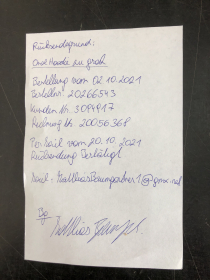 Rücksendegrund:
One Hoode zu groß
Bestellung vom 02.10.2021
Bestellnr. 20266543
Kunden Nr. 3094917
Rechnung Nr. 20056368
Per Mail vom 20.10.2021
Rücksendung bestätigt
Mail - MatthiasBaumgartner1@gmx.net
Matthias